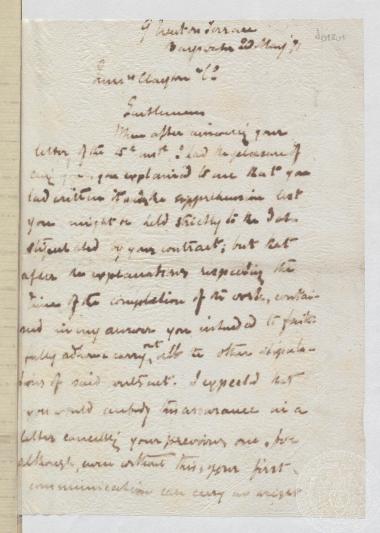 9 Newton Terrace
Bayswater 20 May /71
Clayton & Co
Gentlemen
When after answering your
letter of the 15th inst. I had the pleasure of
you explained to me that you
had written under the apprehension lest
you might be held strictly to the
stipulated by your contract; but that
after the explanations respecting the
time of the completion of the work, contai-
ned in my answer you intended to faith-
fully carry out all the other stipula-
tions of said contract. I expected that
you would embody this assurance in a
letter cancelling your previous one, for
although, even without this, your first
communication can carry no weight